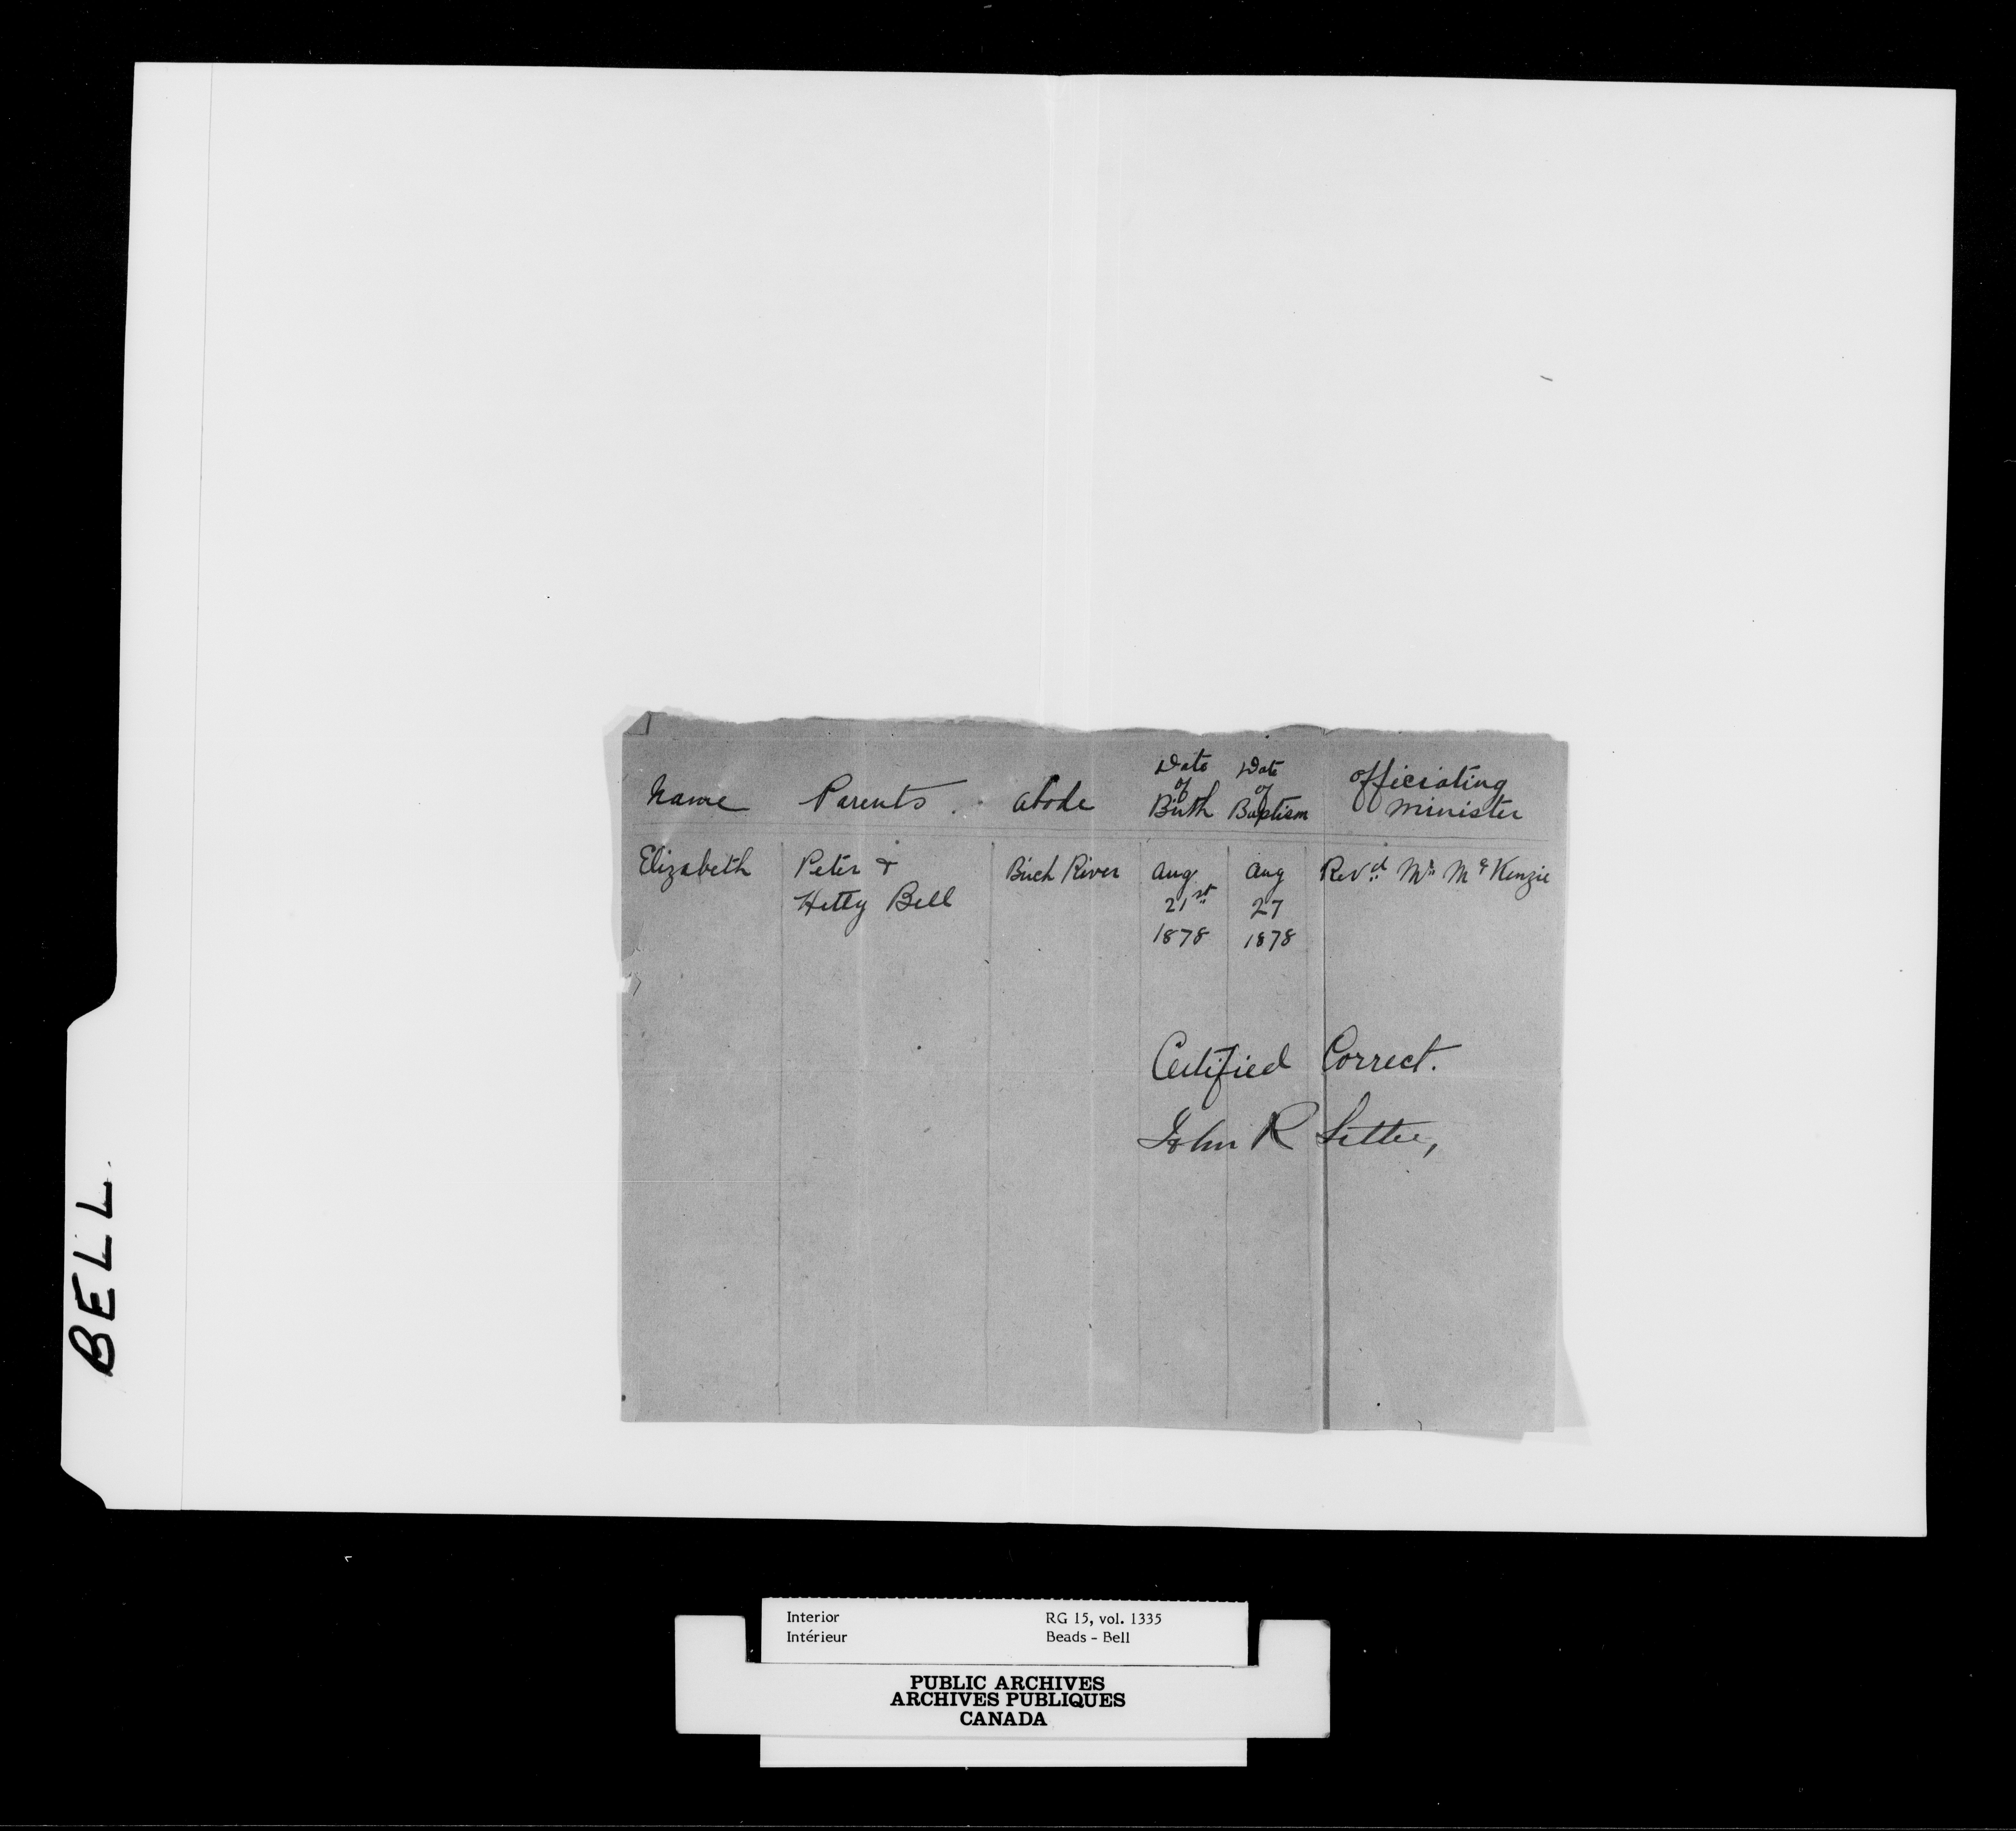 Name Parents Abode Date of Birth Date of Baptism Officiating Minister
Elizabeth Peter & Birch River Aug Aug Revd Mr McKenzie
Hetty Bell 21st 27
1878 1878
Certified Correct.
John R Settee,
BELL.
Interior RG 15, vol. 1335
Intérieur Beads - Bell
PUBLIC ARCHIVES
ARCHIVES PUBLIQUES
CANADA